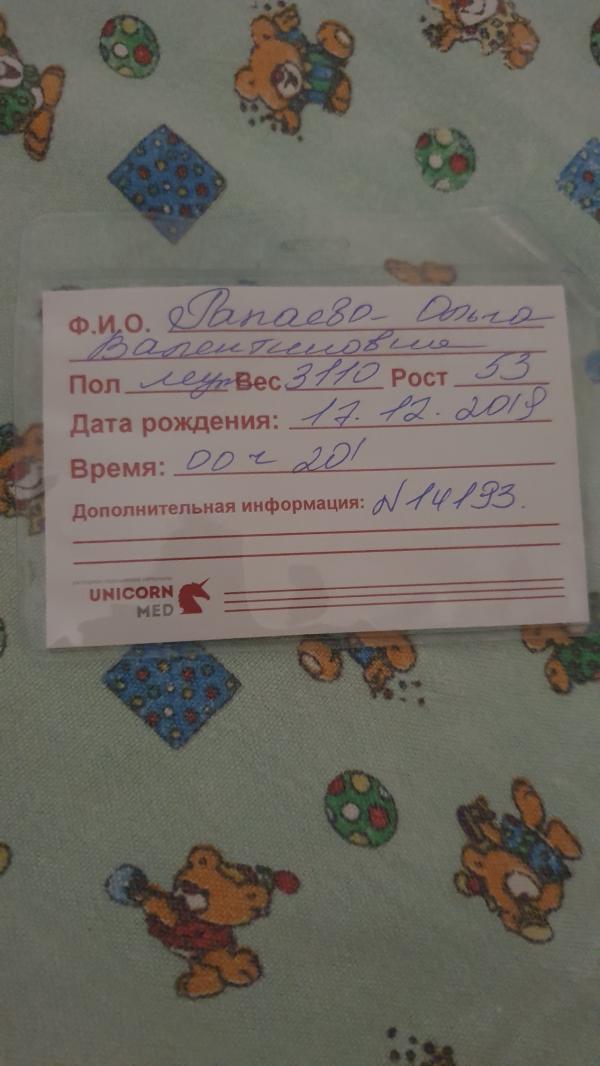 Ф.И.О. Папаева Ольга
Валентиновна
Пол муж Вес 3110 Рост 53
Дата рождения: 17.12.2019
Время: 00 ч 20'
Дополнительная информация: N14193.
UNICORN
MED